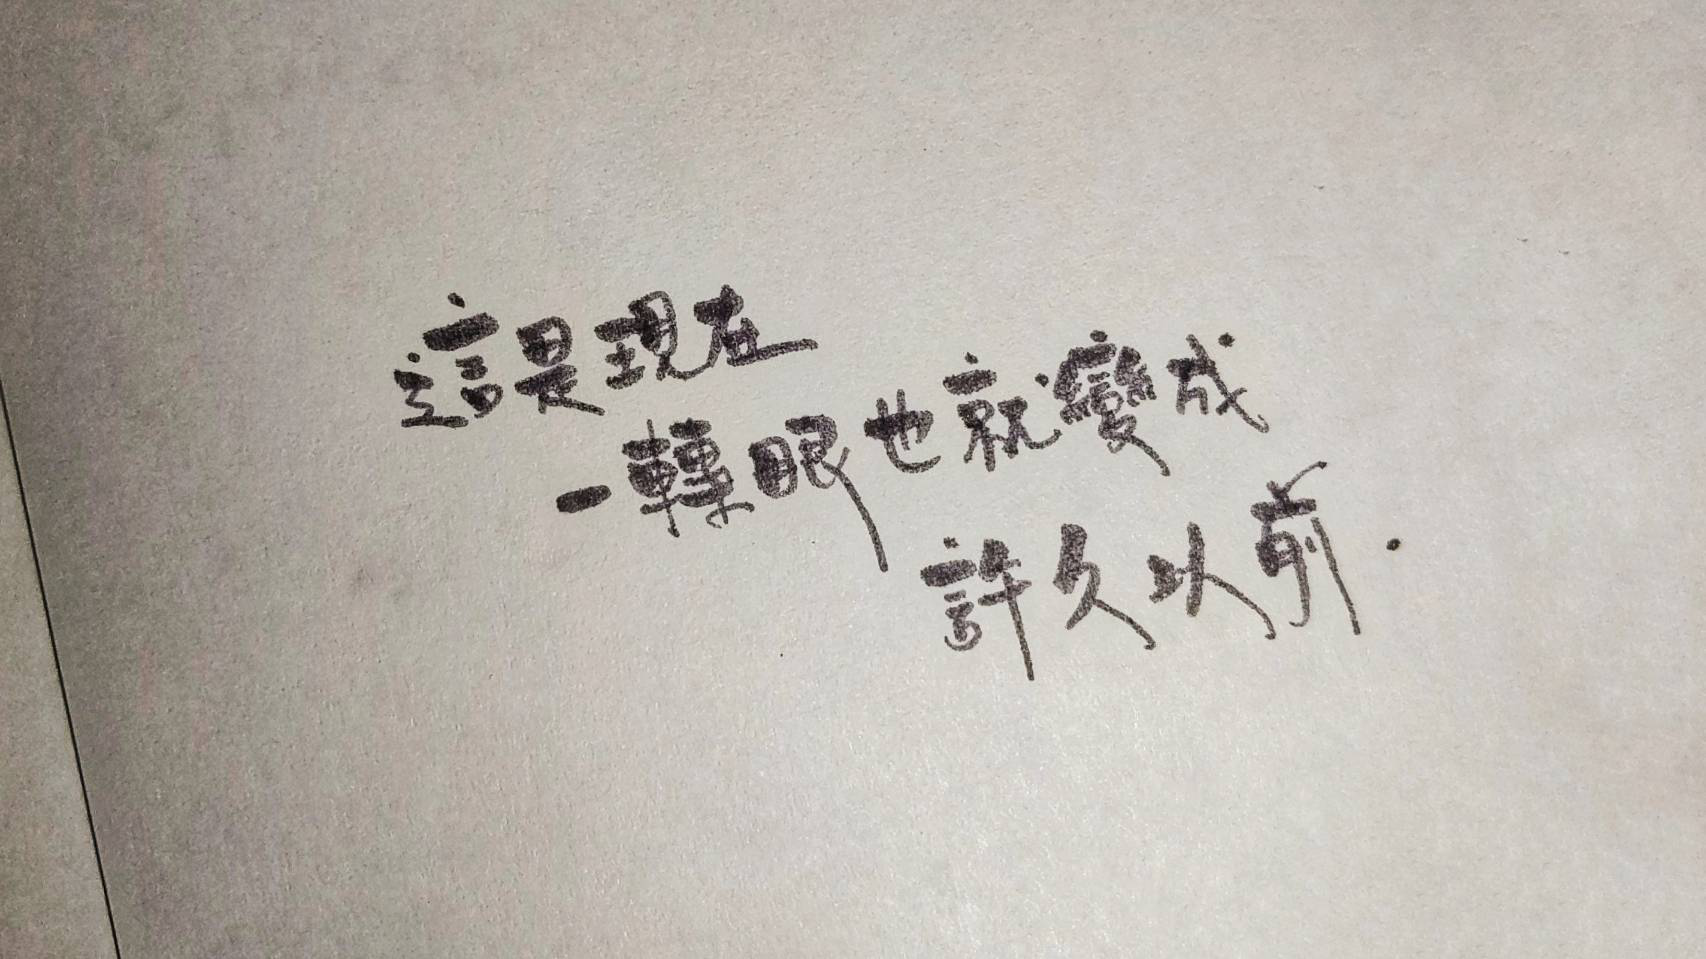 這是現在
一轉眼也就變成
許久以前.